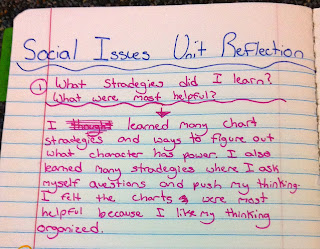 Social Issues Unit Reflection
① What stradegies did I learn?
What were most helpful?
I thought learned many chart
stradegies and ways to figure out
what character has power. I also
learned many stradegies where I ask
myself questions and push my thinking.
I felt the charts were most
helpful because I like my thinking
organized.